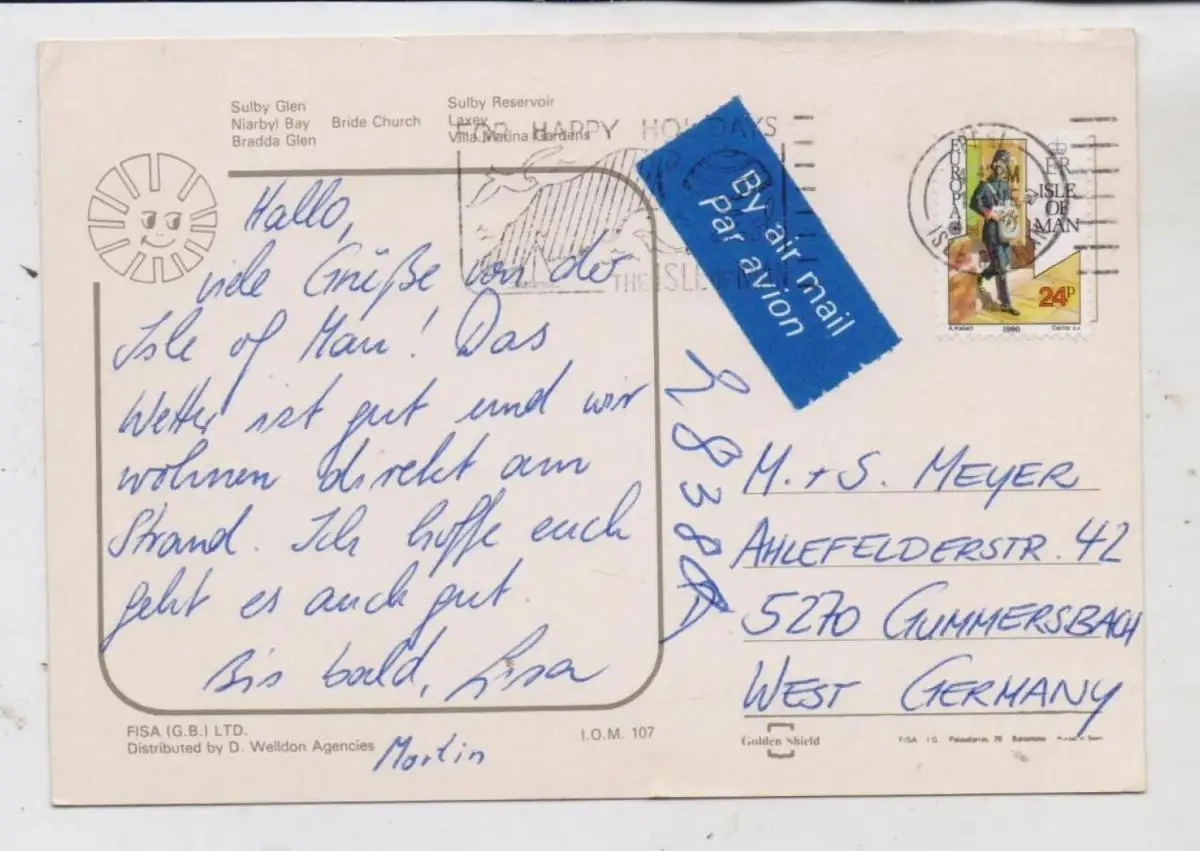 Sulby Glen
Niarbyl Bay
Bradda Glen
Bride Church
Sulby Reservoir
Laxey
Villa Marina Gardens
FOR HAPPY HOLIDAYS
THE ISLE OF MAN
By air mail
Par avion
EUROPA
ER
ISLE
OF
MAN
24p
1990
Hallo,
viele Grüße von der
Isle of Man! Das
Wetter ist gut und wir
wohnen direkt am
Strand. Ich hoffe euch
geht es auch gut.
Bis bald, Lissa
Martin
M. + S. MEYER
AHLEFELDERSTR. 42
5270 GUMMERSBACH
WEST GERMANY
FISA (G.B.) LTD.
Distributed by D. Welldon Agencies
I.O.M. 107
Golden Shield